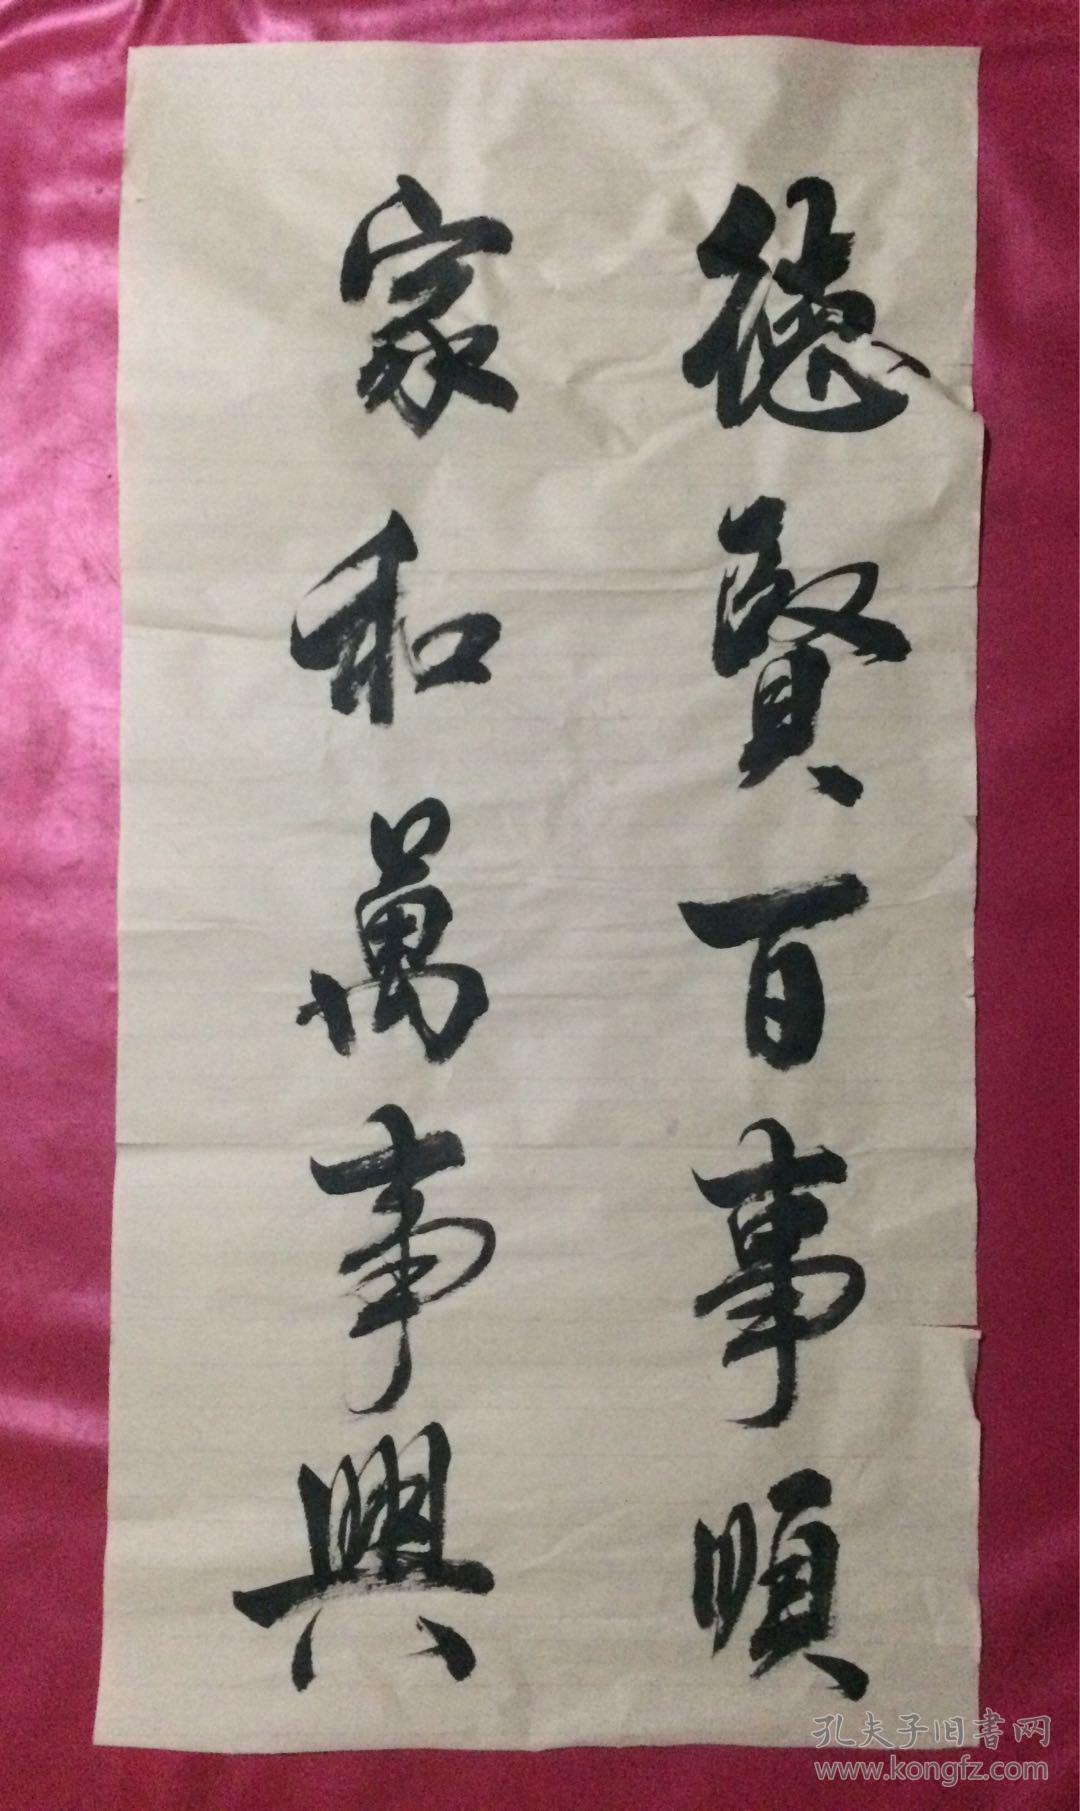 德賢百事順
家和萬事興
孔夫子旧书网
www.kongfz.com